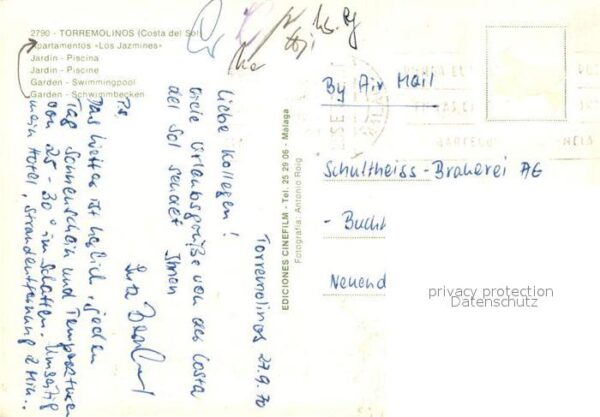 2790 - TORREMOLINOS (Costa del Sol
Apartamentos «Los Jazmines»
Jardin - Piscina
Jardin - Piscine
Garden - Swimmingpool
Garden - Schwimmbecken
Torremolinos 27.9.70
Liebe Kollegen!
viele Urlaubsgrüße von der Costa
del Sol sendet Ihnen
Ps
Das Wetter ist herrlich, jeden
Tag Sonnenschein und Temperaturen
von 25 - 30° im Schatten.
mein Hotel, Strandentfernung 2 Min.
EDICIONES CINEFILM - Tel. 25 29 06 - Malaga
Fotografia: Antonio Roig
By Air Mail
Schultheiss-Brauerei AG
- Buchh
Neuend
privacy protection
Datenschutz